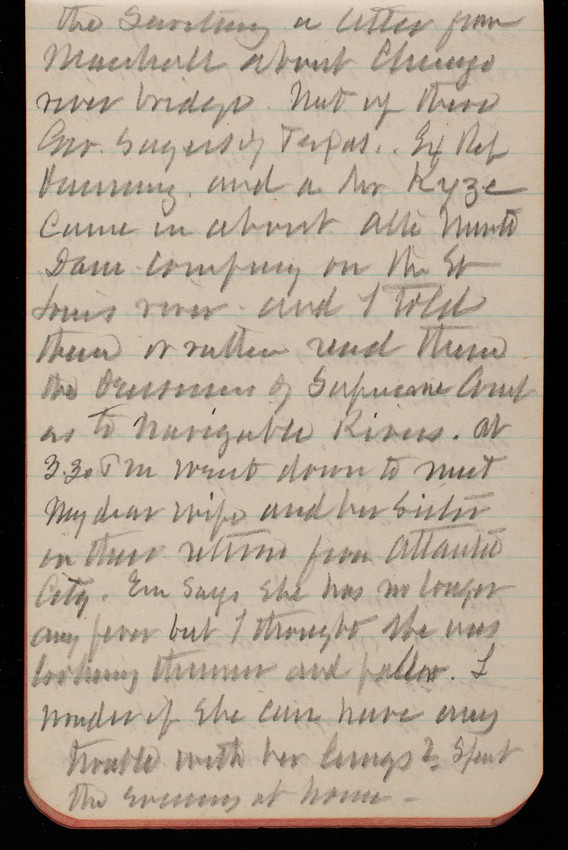 the Secretary a letter from
Marshall about Chicago
river bridge. Met up there
Gov. Sayers of Texas. Ex Rep
and a Mr Kyze
came in about
Dam company on the St
Louis river and I told
them or rather read them
the Decisions of Supreme Court
as to Navigable Rivers. At
3.30 P M went down to meet
My dear wife and her Sister
on their return from Atlantic
City. Em Says She has no longer
any fever but I thought she was
looking thinner and paller. I
wonder if She can have any
trouble with her lungs? Spent
the evening at home -